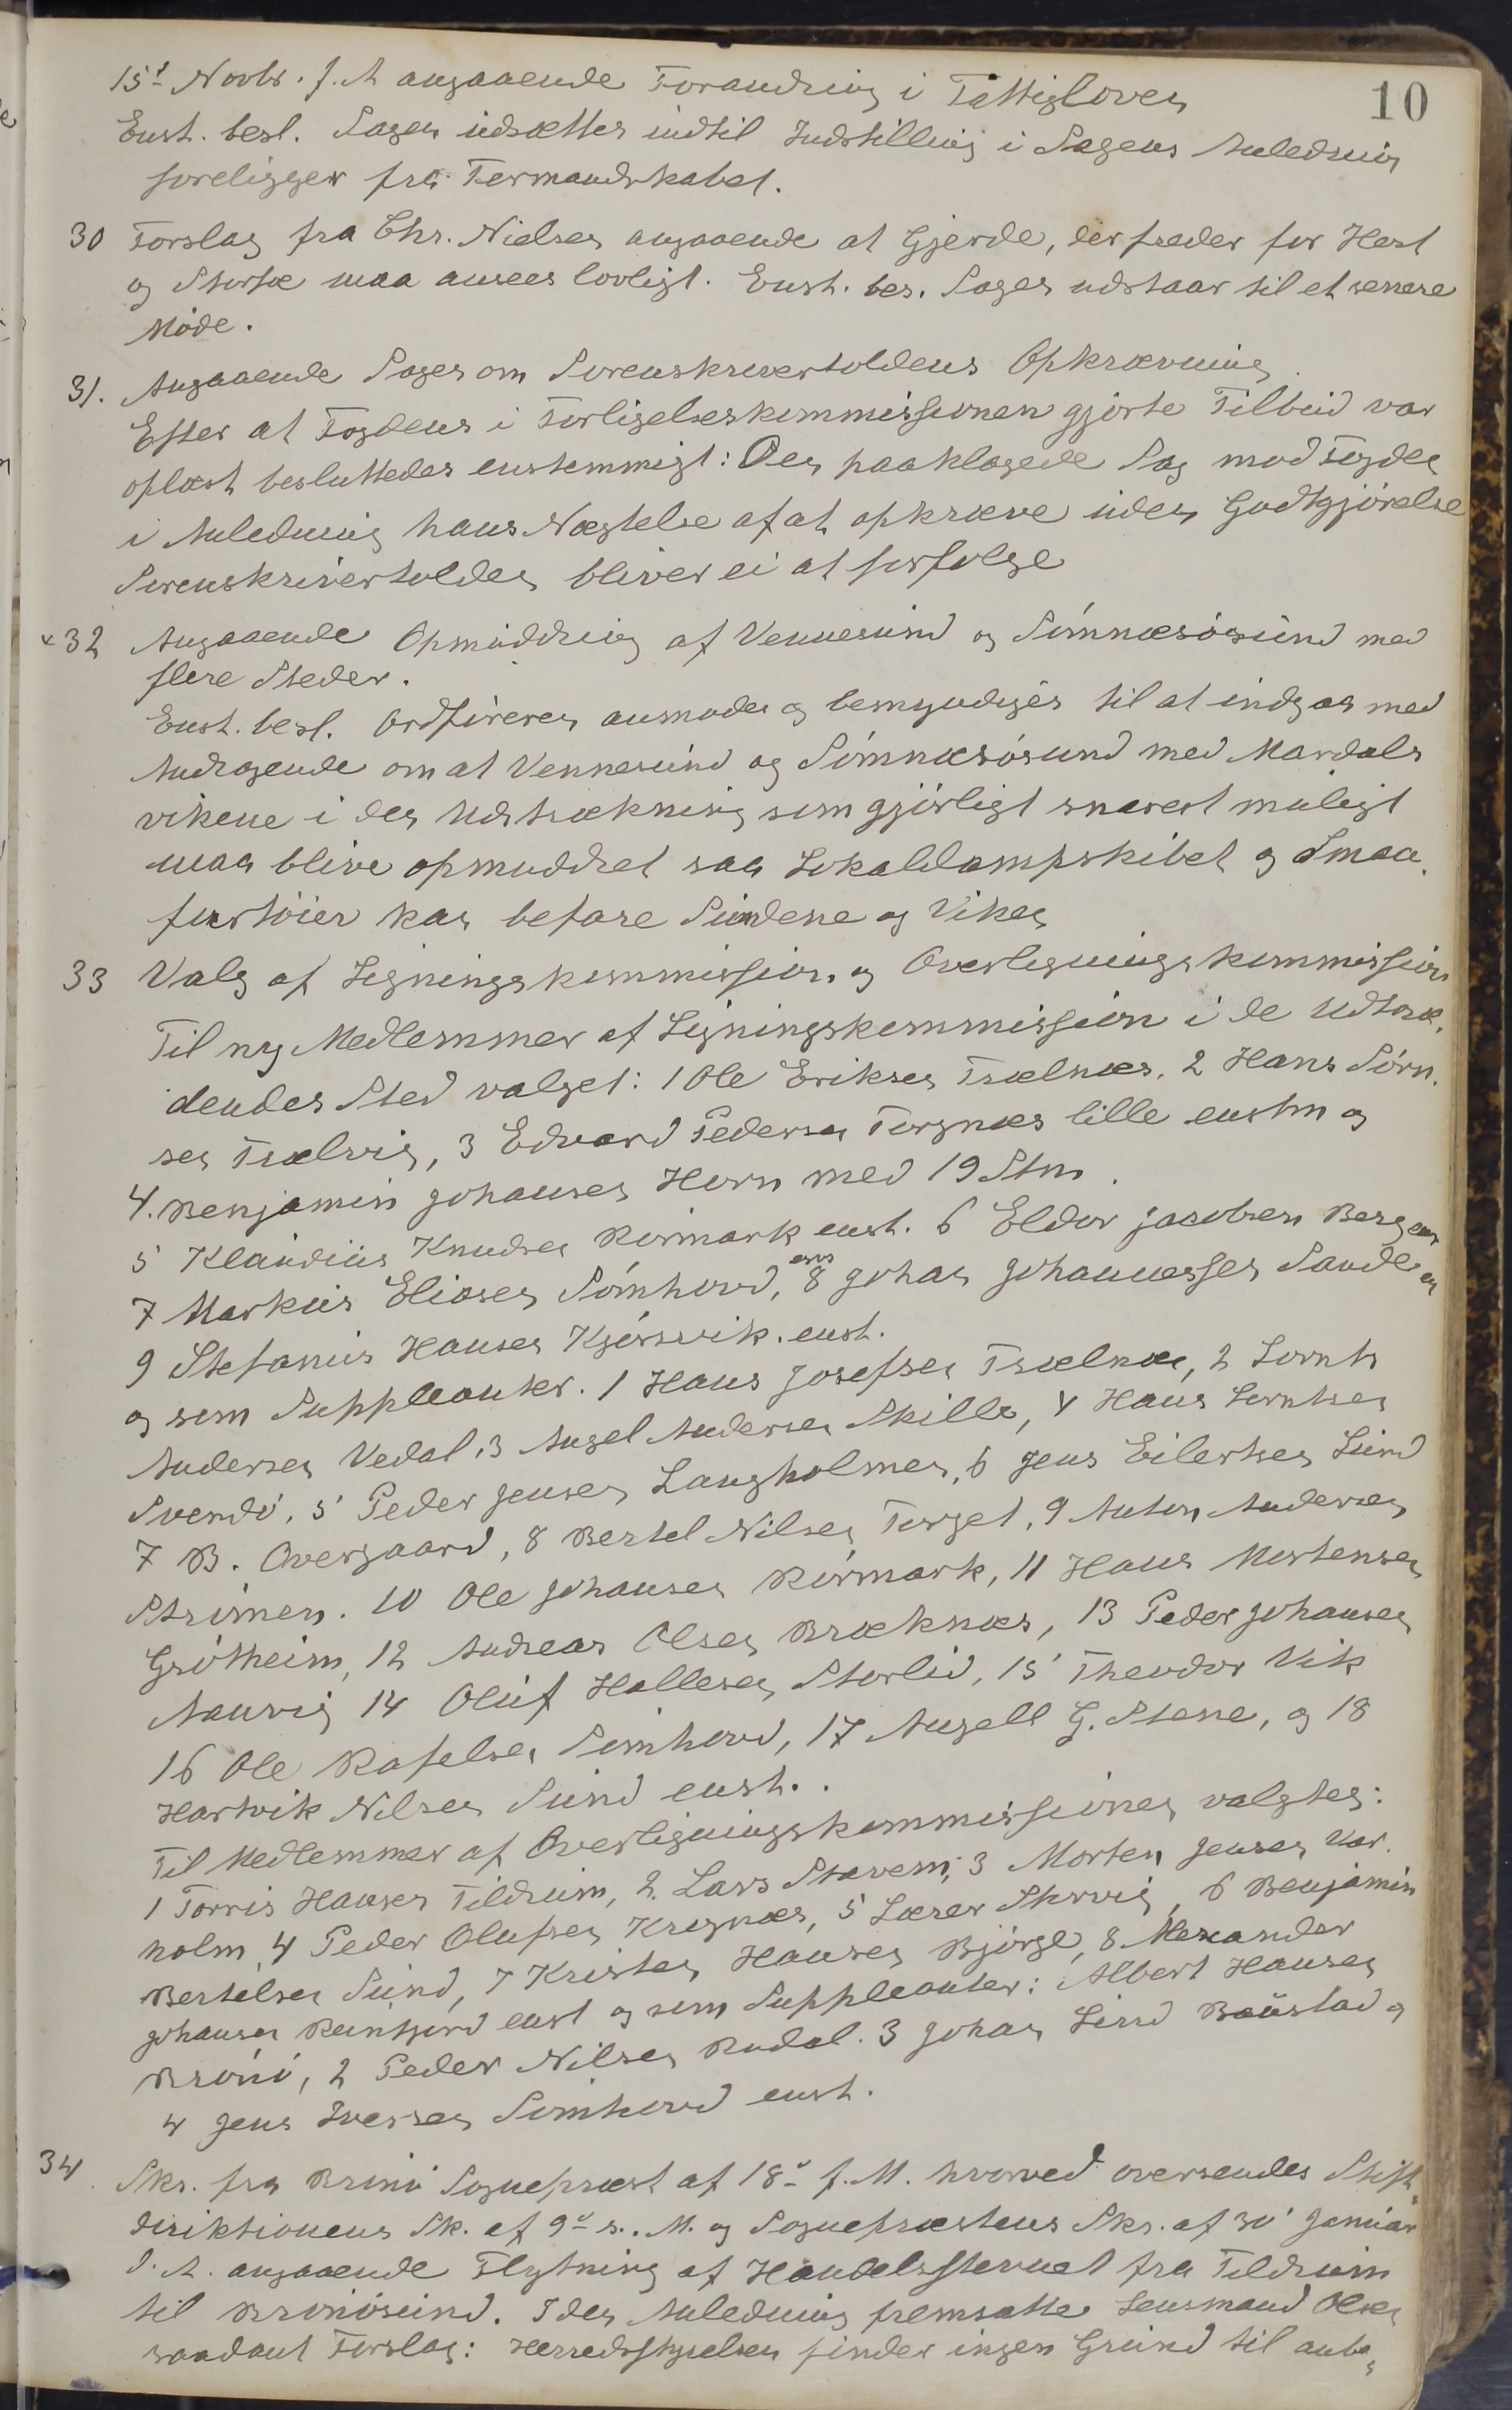 10
15d Novbr. f. A angaaende Forandring i Fattigloven
Enst. besl. Sagen udsættes indtil Indstilling i Sagens Anledning
foreligger fra Formandskabet.
30 Forslag fra Chr. Nielsen angaaende at Gjerde, der freder for Hest
og Storfæ maa ansees lovligt. Enst. bes. Sagen udstaar til et senere
Møde.
31. Angaaende Sagen om Sorenskrivertoldens Opkrævning.
Efter at Fogdens i Forligelseskommissionen gjorte Tilbud var
oplæst besluttedes enstemmigt: Den paaklagede Sag mod Fogden
i Anledning hans Nægtelse af at opkræve uden Godtgjörelse
Sorenskrivertolden bliver ei at forfølge
x 32 Angaaende Opmuddring af Vennesund og Sömnesösund med
flere Steder.
Enst. besl. Ordføreren anmodes og bemyndiges til at indgaa med
Andragende om at Vennesund og Sömnæsösund med Mardals
vikene i den Udstrækning som gjörligt snarest muligt
maa blive opmuddret saa Lokaldampskibet og Smaa.
fartöier kan befare Sundene og Viken
33 Valg af Ligningskommission og Overligningskommission
Til ny Medlemmer af Ligningskommission i de Udtræ.
dendes Sted valget: 1 Ole Eriksen Trælnæs. 2 Hans Sörn.
sen Trælvig, 3 Edvard Pedersen Torgnæs lille enstm og
4. Benjamin Johansen Horn med 19 Stm.
5 Klaudius Knudsen Rörmark enst. 6 Eldor Jacobsen Berg en
7 Markus Eliasen Sömhovd, ens 8 Johan Johannessen Sande en
9 Stefanus Hansen Kjörsvik. enst.
og som Suppleanter. 1 Hans Josefsen Trælnæs, 2 Lornts
Andersen Vedal. 3 Angel Andersen Skille, 4 Hans Lorntsen
Svendö, 5 Peder Jensen Langholmen, 6 Jens Eilertsen Lund
7 B. Overgaard, 8 Bertel Nilsen Torget, 9 Anton Andersen
Strömen. 10 Ole Johansen Rörmark, 11 Hans Mortensen
Gröttheim, 12 Andreas Olsen Bræknæs, 13 Peder Johansen
Aanvig 14 Oluf Hallesen Storlid, 15 Theodor Vik
16 Ole Rafelsen Sömhovd, 17 Angell G. Stene, og 18
Hartvik Nilsen Sund enst.
Til Medlemmer af Overligningskommissionen valgtes:
1 Torris Hansen Tildrum, 2. Lars Stavem, 3 Morten Jensen Var.
holm, 4 Peder Olufsen Krognæs, 5 Lærer Storvig, 6 Benjamin
Bertelsen Sund, 7 Kristen Hansen Bjørge, 8 Alexander
Johansen Reinfjord enst og som Suppleanter: Albert Hansen
Brönö, 2 Peder Nilsen Rødal. 3 Johan Lund Baustad og
4 Jens Iversen Sömhovd enst.
34. Skr. fra Brönö Sogneprest af 18d f. M. hvorved oversendes Stift.
direktionens Sk. af 9d s. M. og Sogneprestens Skr. af 30' Januar
d. A. angaaende Flytning af Handelsstevnet fra Tildrum
til Brönösund. I den Anledning fremsatte Lensmand Olsen
saadant Forslag: Herredsstyrelsen finder ingen Grund til anbe,